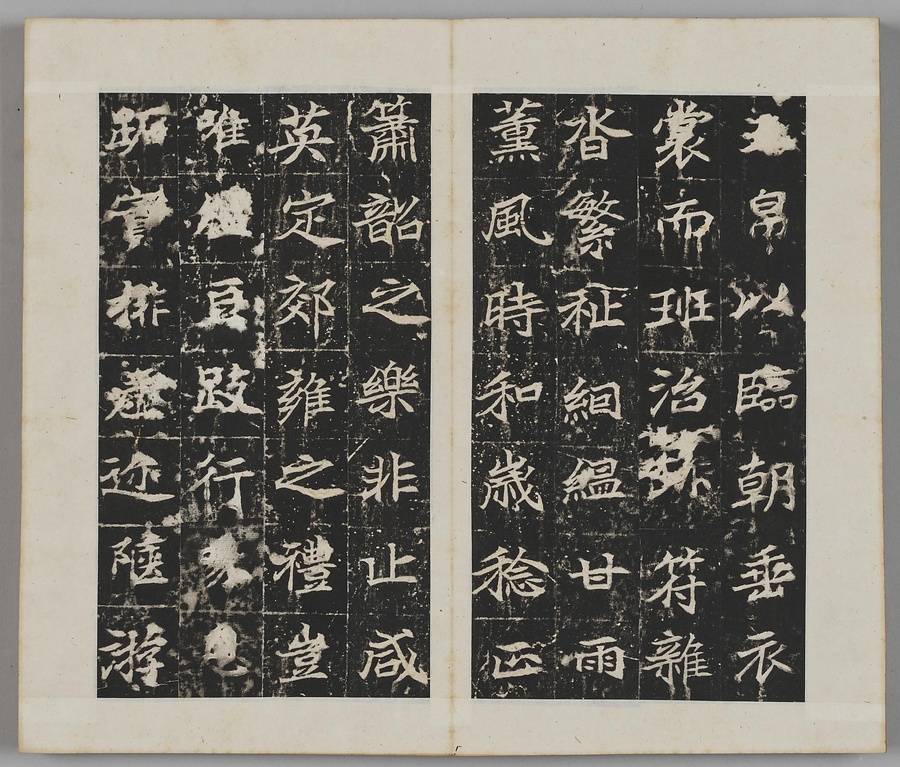 帛以臨朝垂衣
裳而班治符雜
沓繁祉絪縕甘雨
薰風時和歲稔正
簫韶之樂非止咸
英定郊雍之禮豈
唯跂行
實排虛迩陸游